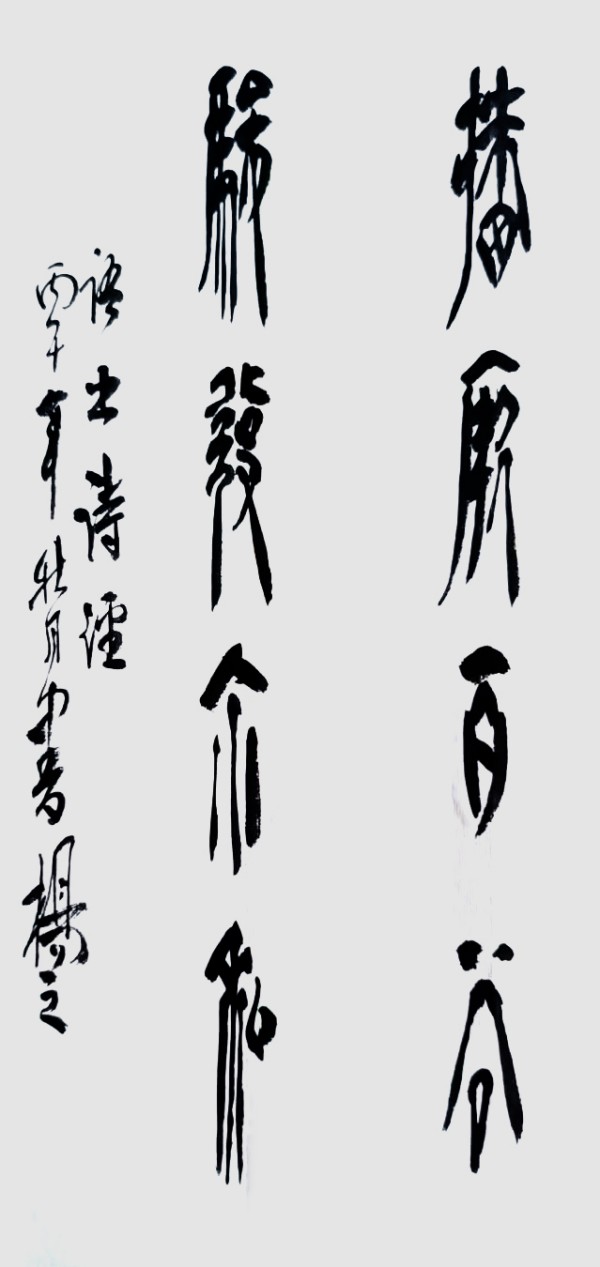 播厥百谷
駿發尔私
語出詩經
丙午年 月中書 楊之